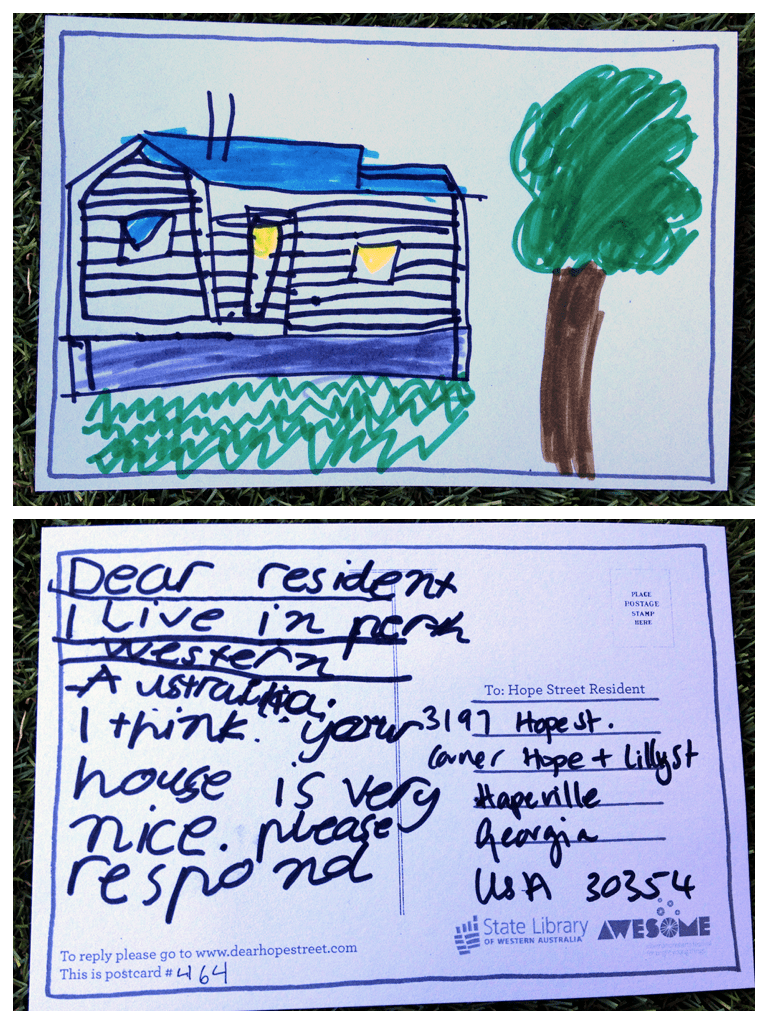 Dear resident
I Live in perth
Western
Australia.
I think your
house is very
nice. please
respond
PLACE
POSTAGE
STAMP
HERE
To: Hope Street Resident
3197 Hope st.
corner Hope + Lilly st
Hapeville
Georgia
USA 30354
State Library
OF WESTERN AUSTRALIA
AWESOME
To reply please go to www.dearhopestreet.com
This is postcard # 464